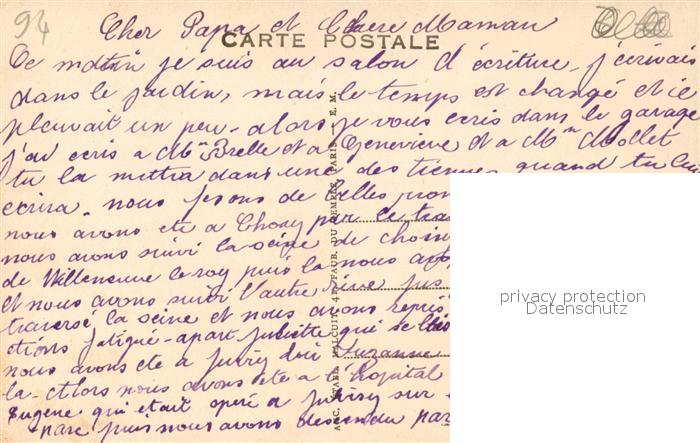 94
Cher Papa et Chere Maman
CARTE POSTALE
Ce matin je suis au salon d'écriture - j'écrivais
dans le jardin, mais le temps est changé et il
pleuvait un peu - alors je vous ecris dans le garage
j'ai ecris a Mme Brelle et a Genevieve et a Mme Mollet
tu la mettra dans une des tiennes quand tu lui
écrira - nous fesons de belles prom
nous avons ete a Choisy par le tra
nous avons suivi la seine de choisi
de Villeneuve le roy puis la nous avo
et nous avons suivi l'autre rive jus
traversé la seine et nous avons repris
étions fatigué - apart Juliette qui
nous avons ete a Juvisy Suzanne
la - Alors nous avons ete a l'hopital
Eugene qui etait opéré a Juvisy sur
parc puis nous avons descendu par
FAUB. DU TEMPLE, PARIS - E. M.
privacy protection
Datenschutz